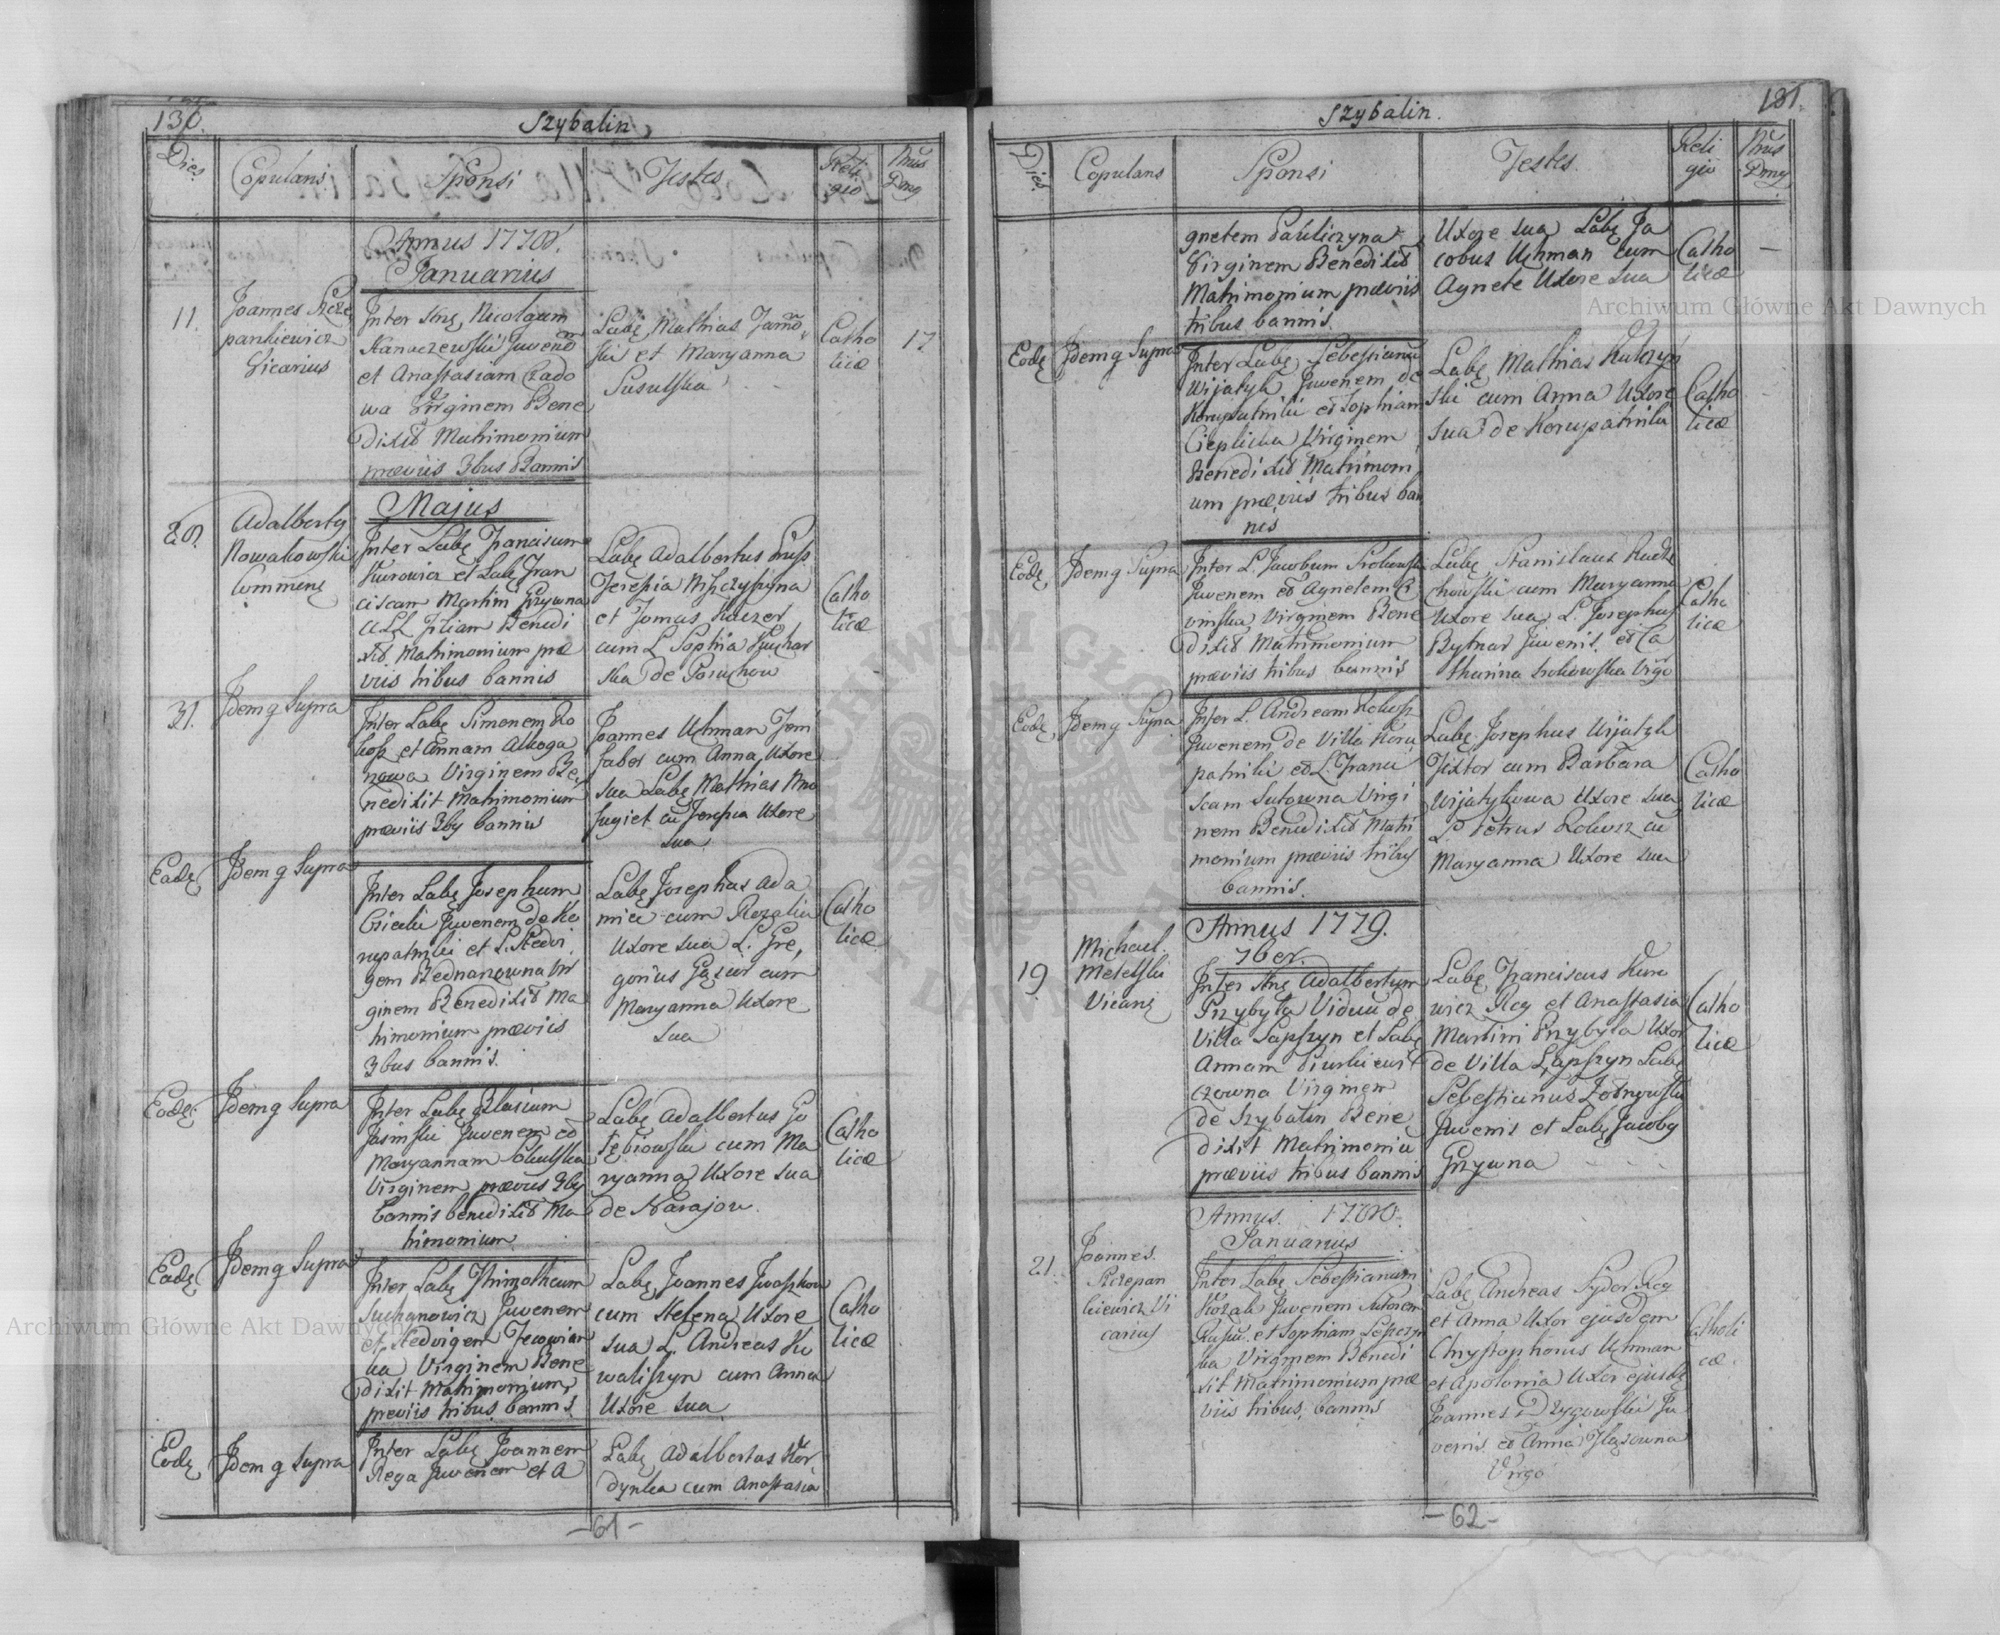 130.
Szybalin
Dies.
Copulans
Sponsi
Testes
Reli
gio
Nrus
Domg
Annus 1778.
Januarius
11.
Joannes Szcze
pankiewicz
Vicarius
Inter Hnę Nicolaum
et Anastasiam Czado
wa Virginem Bene
dixit Matrimonium
præviis 3bus Bannis
Labę Mathias
ski et Maryanna
Susulska
Catho
licæ
17
Majus
Adalberty
Nowakowski
Commenę
Inter Labę Franciscum
Kurowicz et Labę Fran
ciscam Martini Grzywna
Filiam Benedi
xit Matrimonium præ
viis tribus bannis
Labę Adalbertus
Teresia
et Tomas Kaczor
cum L Sophia Kuchar
ska de Poruchow
Catho
licæ
31.
Idem q Supra
Inter Labę Simonem Ro
kosz et Annam
nowa Virginem Be
nedixit Matrimonium
præviis 3by bannis
Joannes Uhman
faber cum Anna Uxore
sua Labę Mathias
cū Teresia Uxore
sua
Eadę
Idem q Supra
Inter Labę Josephum
Juvenem de Ko
rupatniki et L. Hedvi
gem Bednarzowna Vir
ginem Benedixit Ma
trimonium præviis
3bus bannis.
Labę Josephus Ada
mice cum Rozalia
Uxore sua L. Gre,
gorius Gązior cum
Maryanna Uxore
Sua
Catho
licæ
Eadę.
Idem q Supra
Inter Labę Blasium
Jasinski Juvenem et
Maryannam
Virginem prævus 3by
bannis benedixit Ma
trimonium
Labę Adalbertus Go
łębiowski cum Ma
ryanna Uxore sua
de Narajow.
Catho
licæ
Eadę
Idem q Supra
Inter Labę Thimotheum
Suchanowicz Juvenem
et Hedvigem
ka Virginem Bene
dixit Matrimonium,
præviis tribus bannis
Labę Joannes Iwaszkow
cum Helena Uxore
sua L. Andreas Ko
waliszyn cum Anna
Uxore sua
Catho
licæ
Eodę
Idem q Supra
Inter Labę Joannem
Rega Juvenem et A
Labę Adalbertus Kor
dynka cum Anastasia
-61-
131.
Szybalin.
Dies
Copulans
Sponsi
Testes.
Reli
gio
Nrus
Domg
gnetem Pauliczyna
Virginem Benedixit
Matrimonium præviis
tribus bannis.
Uxore sua Labę Ja
cobus Uhman cum
Agnete Uxore sua
Catho
licæ
Eodę
Idem q Supra
Inter Labę Sebestianū
Wijatyk Juvenem de
Korupatniki et Sophiam
Cieplicka Virginem
Benedixit Matrimoni
um præviis tribus ban
nis
Labę Mathias Kulczyń
ski cum Anna Uxore
sua de Korupatniki
Catho
licæ
Eodę
Idem q Supra
Inter L. Jacobum Srokowski
Juvenem et Agnetem
vinska Virginem Bene
dixit Matrimonium
præviis tribus bannis
Labę Stanislaus
chowski cum Maryanna
Uxore sua L. Josephus
Bytnar Juvenis et Ca
tharina Srokowska Virgo
Catho
licæ
Eodę
Idem q Supra
Inter L. Andream Rokosz
Juvenem de Villa Koru
patniki et L. Franci
scam Sutowna Virgi
nem Benedixit Matri
monium præviis tribus
bannis.
Labę Josephus Wijatyk
Textor cum Barbara
Wijatykowa Uxore sua
L Petrus Rokosz cū
Maryanna Uxore sua
Catho
licæ
Annus 1779.
7ber.
19
Michael.
Metelski
Vicarię
Inter Hnę Adalbertum
Przybyła Viduū de
Villa Łapszyn et Labę
Annam
czowna Virginem
de Szybalin Bene
dixit Matrimoniū
præviis tribus bannis
Labę Franciscus Kuro
wicz Rcg et Anastasia
Martini Przybyla Uxor
de Villa Łapszyn Labę
Sebestianus
Juvenis et Labę Jacoby
Grzywna
Catho
licæ
Annus. 1780.
Januarius
21.
Joannes
Szczepan
kiewicz Vi
carius
Inter Labę Sebestianum
Kozak Juvenem Sutorem
et Sophiam Leszczyń
ka Virginem Benedi
xit Matrimonium præ
viis tribus bannis
Labę Andreas Sydor Rcg
et Anna Uxor ejusdem
Chrystophorus Uhman
et Apolonia Uxor ejusdę
Joannes Drzygowski Ju
venis et Anna
Virgo
Catholi
cæ.
-62-
Archiwum Główne Akt Dawnych
Archiwum Główne Akt Dawnych